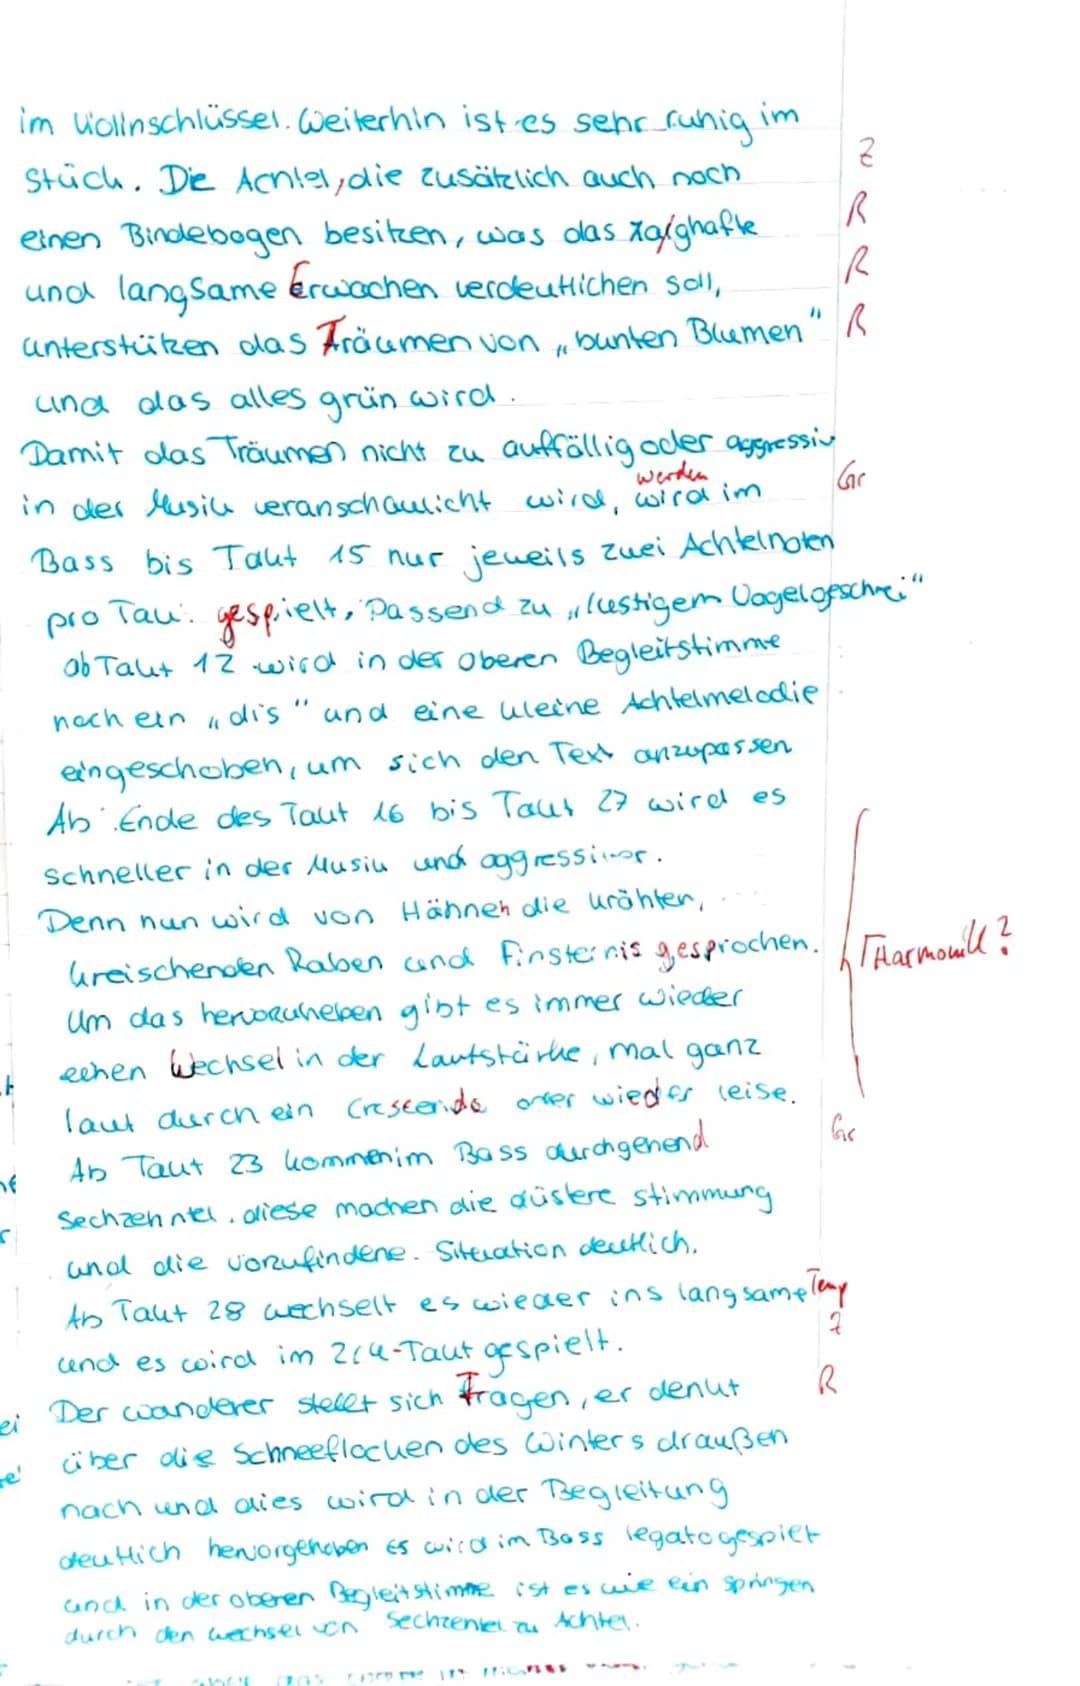 im Violinschlüssel. Weiterhin ist es sehr ruhig im
Z
Stück. Die Achtel, die zusätzlich auch noch
R
einen Bindebogen besitzen, was das zaghafte
R
und langsame Erwachen verdeutlichen soll,
unterstützen das Träumen von „bunten Blumen" R
und das alles grün wird.
Damit das Träumen nicht zu auffällig oder aggressiv
werden Gr
in der Musik veranschaulicht wird, wird im
Bass bis Takt 15 nur jeweils zwei Achtelnoten
pro Tak. gespielt. Passend zu „lustigem Vogelgeschrei"
ab Takt 12 wird in der oberen Begleitstimme
noch ein „dis" und eine kleine Achtelmelodie
eingeschoben, um sich den Text anzupassen
Ab Ende des Takt 16 bis Takt 27 wird es
schneller in der Musik und aggressiver.
Denn nun wird von Hähnen die krähten,
kreischenden Raben und Finsternis gesprochen. Harmonik?
Um das hervorzuheben gibt es immer wieder
einen Wechsel in der Lautstärke, mal ganz
laut durch ein Crescendo oder wieder leise.
Gr
Ab Takt 23 kommen im Bass durchgehend
Sechzehntel, diese machen die düstere Stimmung
und die vorzufindene Situation deutlich.
Ab Takt 28 wechselt es wieder ins langsame Temp
Z
und es wird im 2/4-Takt gespielt.
Der wanderer stellt sich Fragen, er denkt R
über die Schneeflocken des Winters draußen
nach und dies wird in der Begleitung
deutlich hervorgehoben es wird im Bass legato gespielt
und in der oberen Begleitstimme ist es wie ein springen
durch den wechsel von Sechzentel zu Achtel.